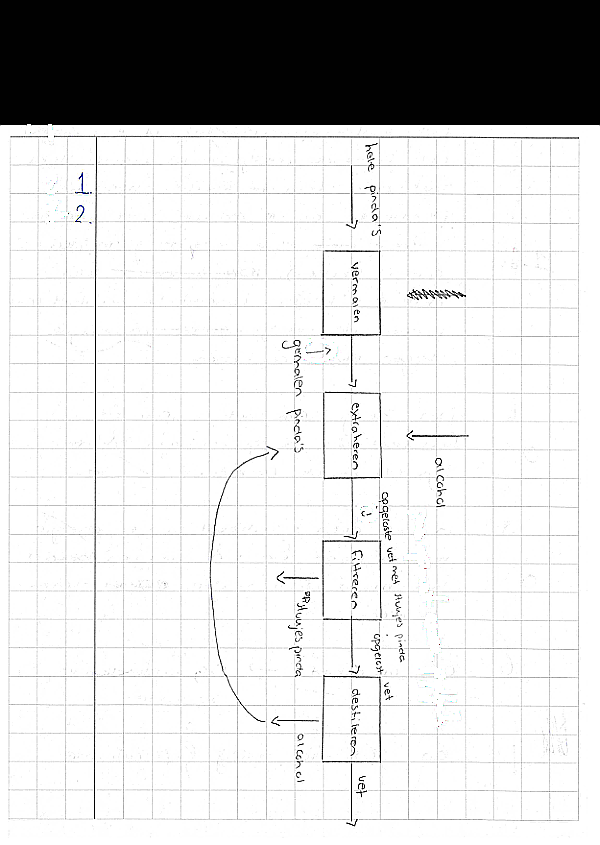 1.
2.
hele pinda's
vermalen
gemalen pinda's
extraheren
alcohol
opgeloste vet met stukjes pinda
filtreren
stukjes pinda
opgelost vet
destilleren
alcohol
vet